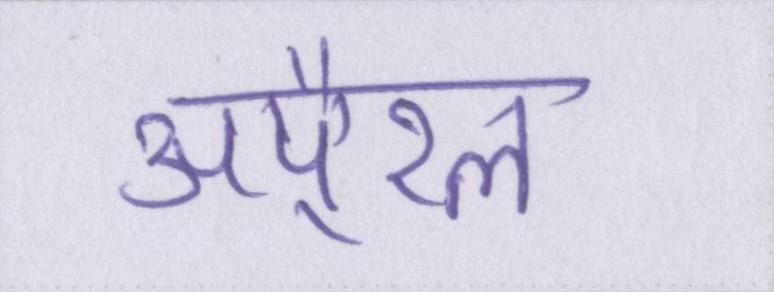 अपै्रल